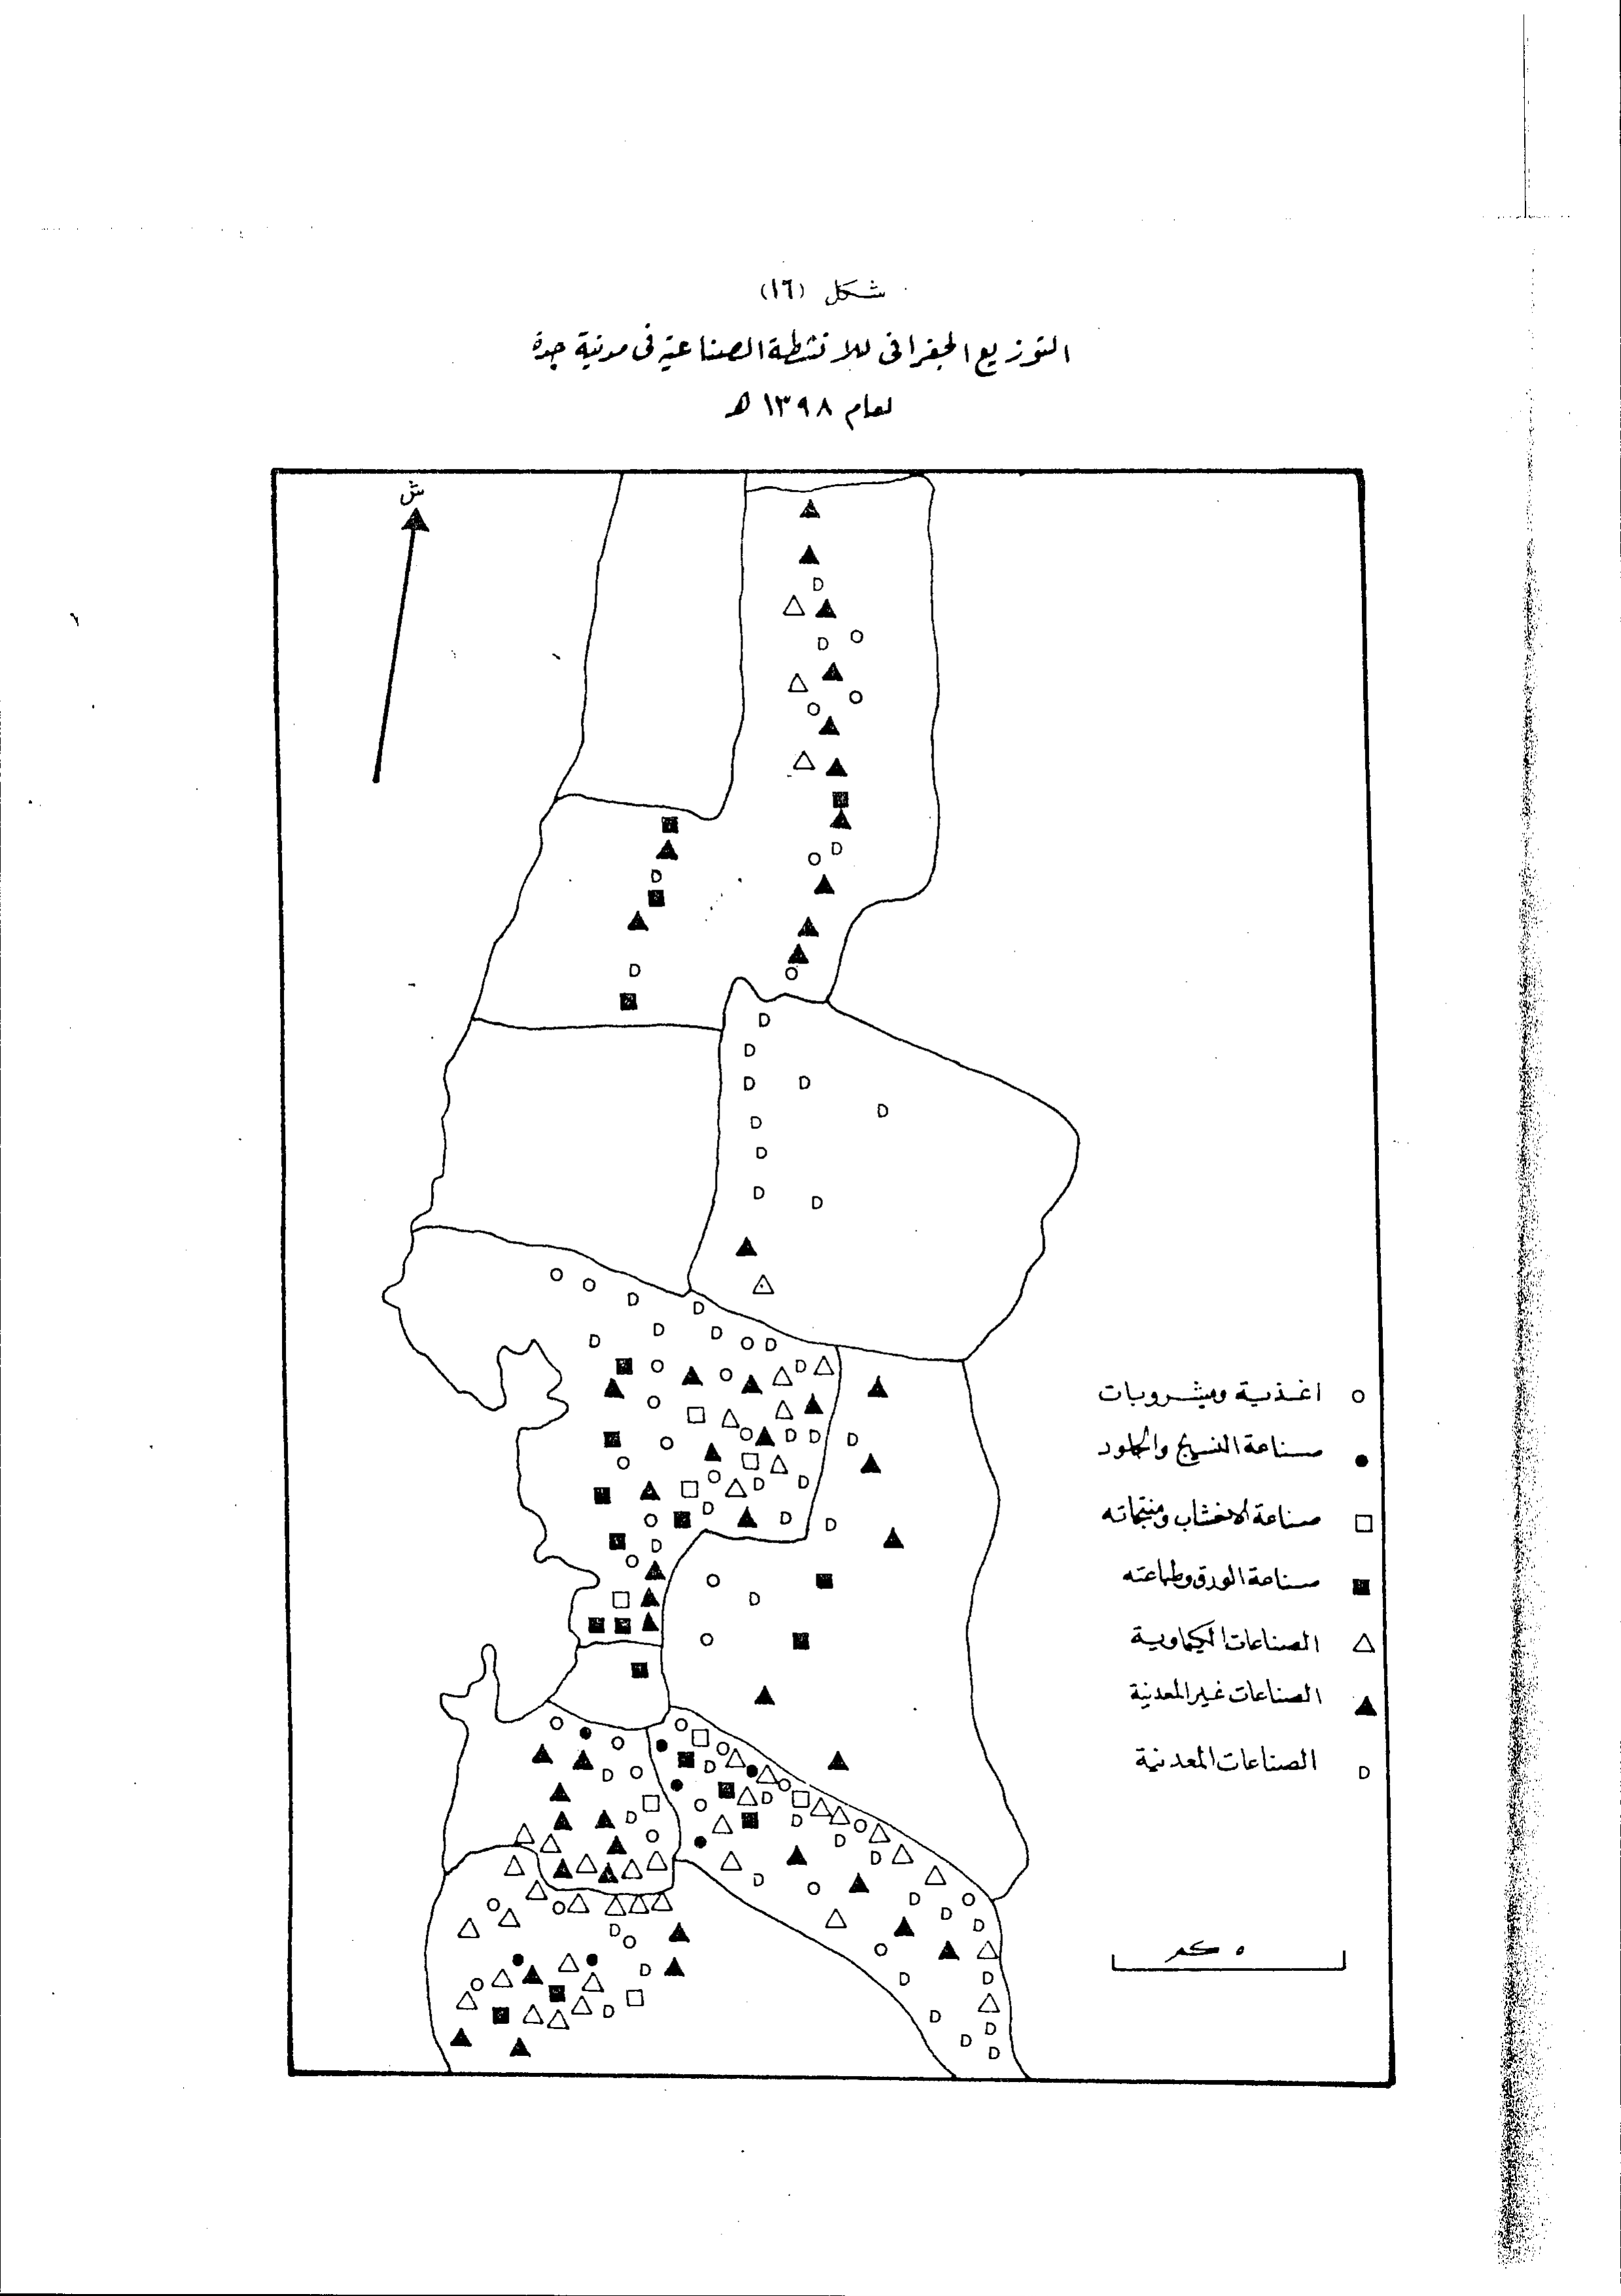 شكل (١٦)
التوزيع الجغرافى للانشطة الصناعية فى مدينة جدة
لعام ١٣٩٨ هـ
ش
اغذية ومشروبات
صناعة النسيج والجلود
صناعة الاخشاب ومنتجاته
صناعة الورق وطباعته
الصناعات الكيماوية
الصناعات غير المعدنية
الصناعات المعدنية
٥ كم